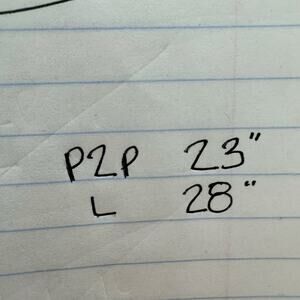 P2P 23"
L 28"